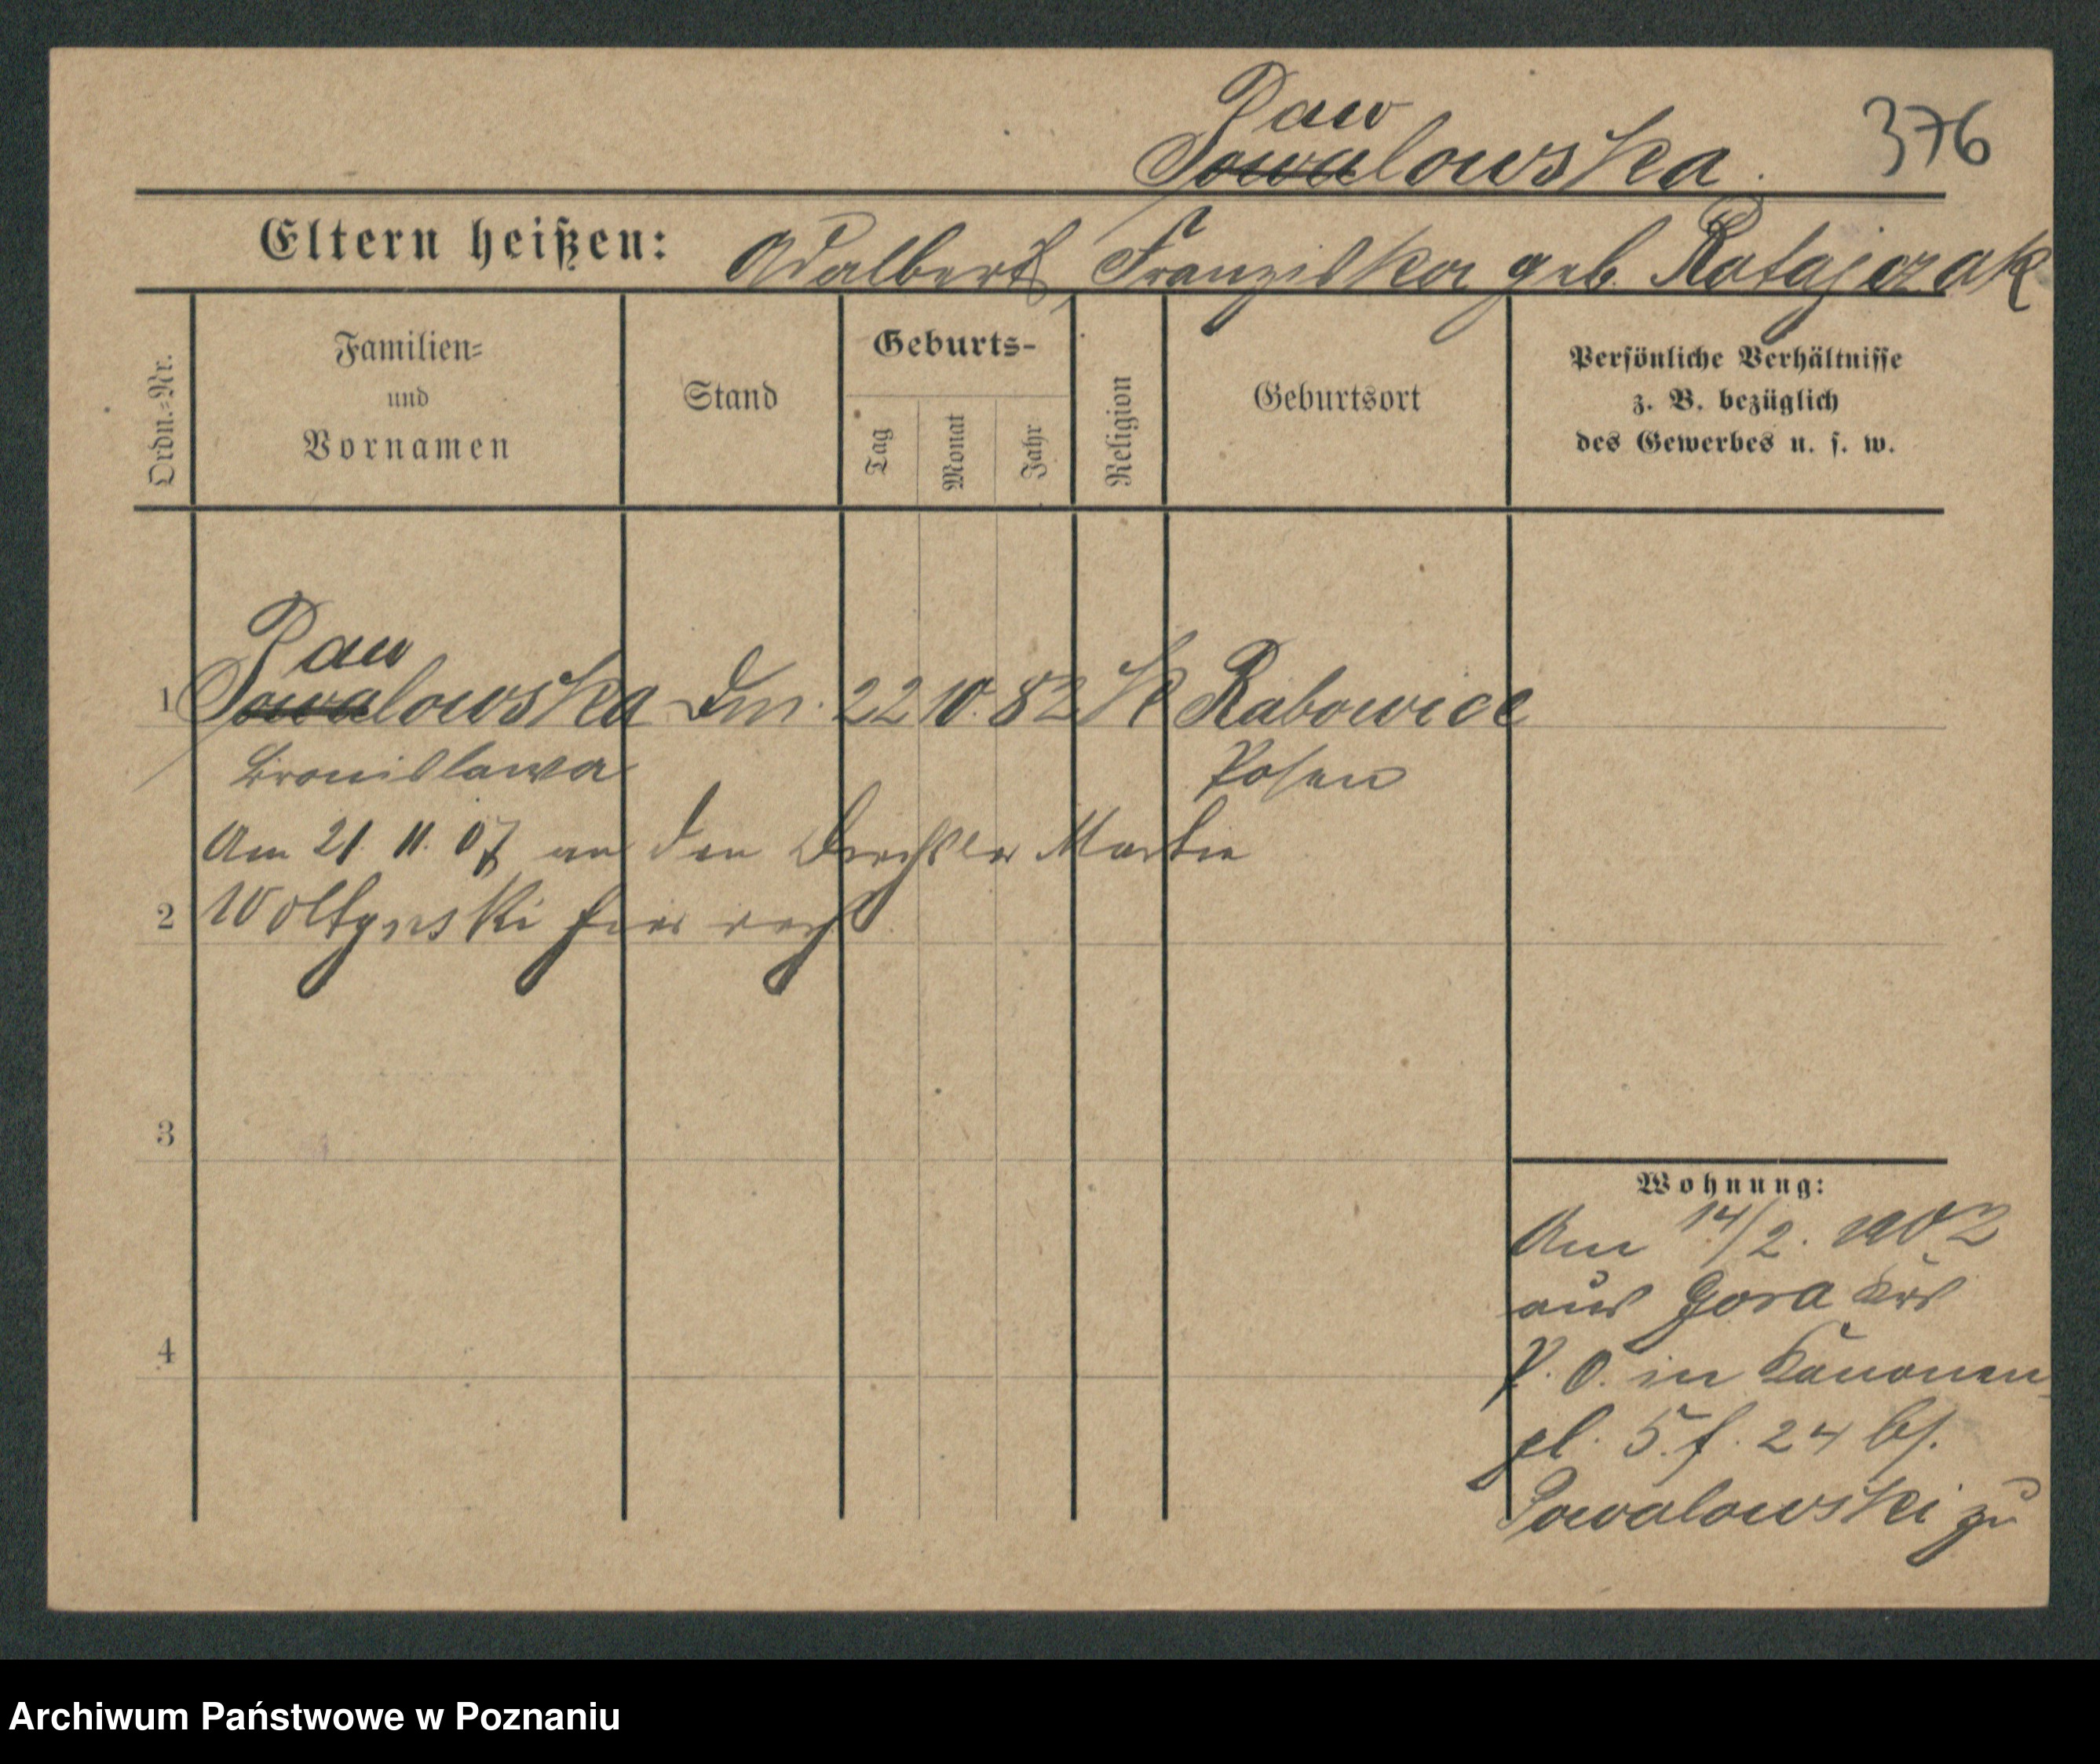 Paw
Powalowska.
376
Eltern heißen: Adalbert, Franziska geb. Ratajczak
Ordn.=Nr.
Familien=
und
Vornamen
Stand
Geburts-
Tag
Monat
Jahr
Religion
Geburtsort
Persönliche Verhältnisse
z. B. bezüglich
des Gewerbes u. s. w.
Paw
1 Powalowska Dm. 22 10. 82 K Rabowice
Bronislawa Posen
Am 21. 11. 07 an den Drechsler Martin
2 Woltynski hier verh
3
4
Wohnung:
Am 14/2. 1902
aus Gora Krs
P. O. in Kanonen
pl. 5. f. 24 bs.
Powalowski zu
Archiwum Państwowe w Poznaniu